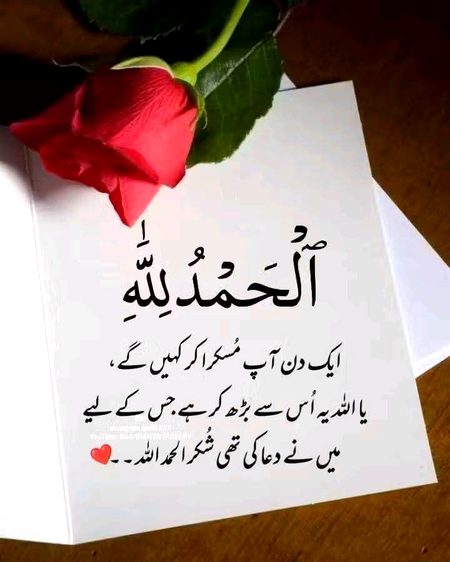 ٱلْحَمْدُ لِلّٰهِ
ایک دن آپ مُسکرا کر کہیں گے،
یا اللہ یہ اُس سے بڑھ کر ہے جس کے لیے
میں نے دعا کی تھی شُکر الحمد اللہ ۔ ۔ ❤️